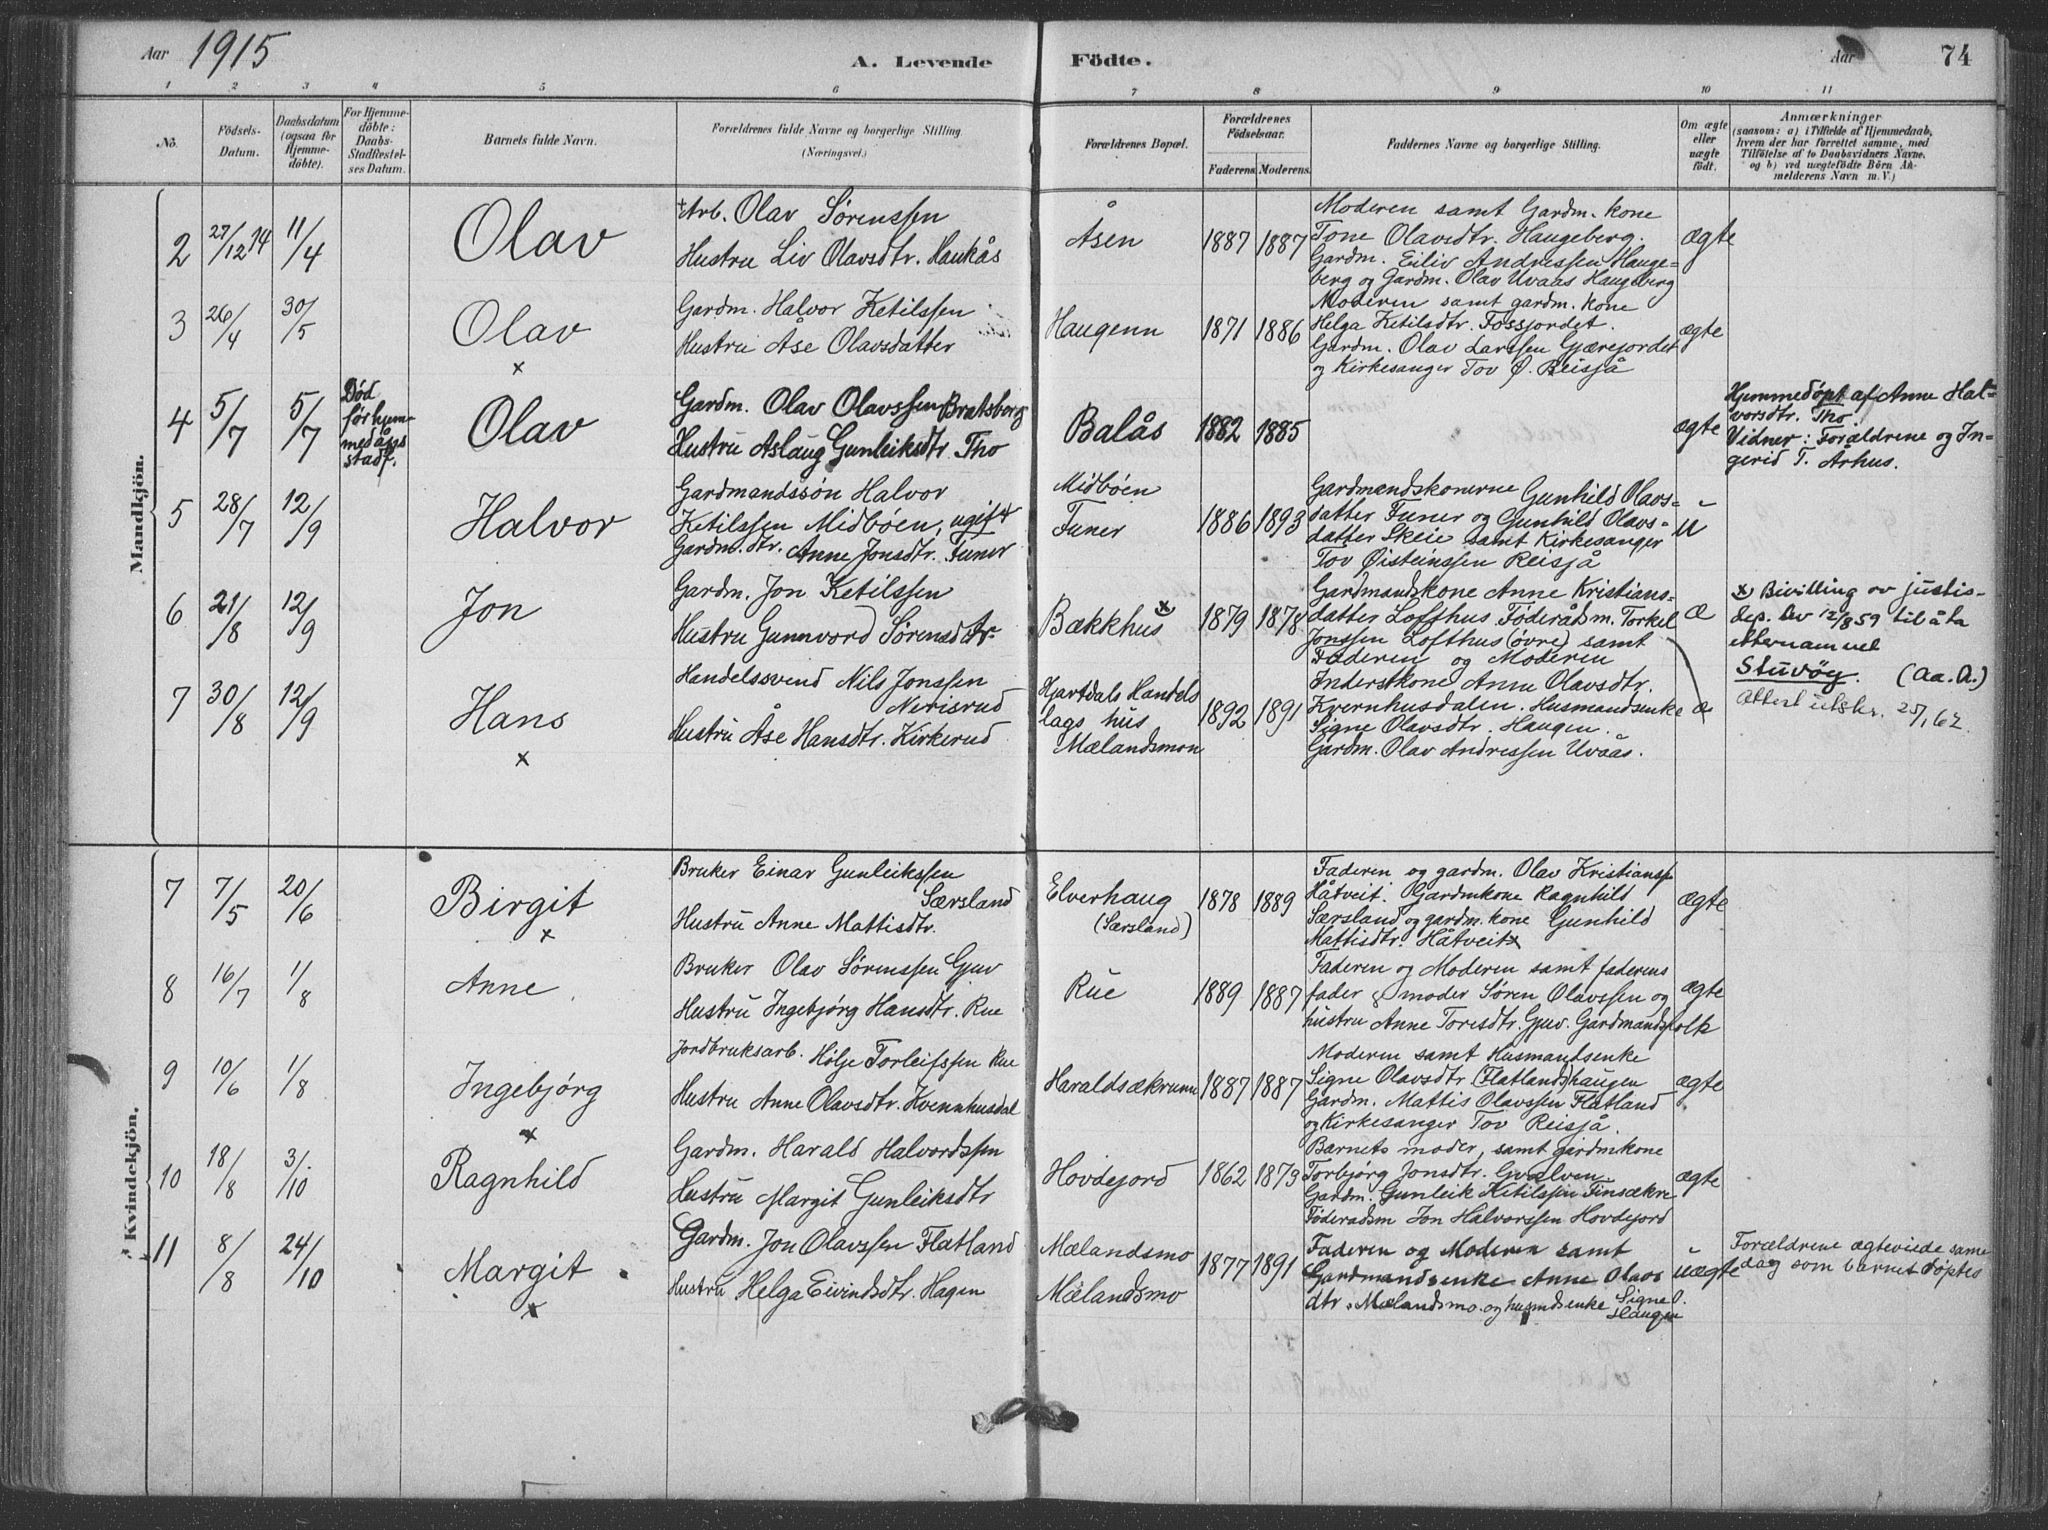 Aar 1915 A. Levende Födte. Aar 74
1 2 3 4 5 6 7 8 9 10 11
No. Födsels-Datum. Daabsdatum (ogsaa for Hjemmedöbte). For Hjemmedöbte: Daabs-Stadfæstelses Datum. Barnets fulde Navn. Forældrenes fulde Navne og borgerlige Stilling. (Næringsvei.) Forældrenes Bopæl. Forældrenes Födselsaar. Faderens. Moderens. Faddernes Navne og borgerlige Stilling. Om ægte eller uægte födt. Anmærkninger (saasom: a) i Tilfælde af Hjemmedaab, hvem der har forrettet samme, med Tilföielse af to Daabsvidners Navne, og b) ved uægtefödte Börn Anmelderens Navn m. V.)
Mandkjön.
2 27/12 14 11/4 Olav
Arb. Olav Sørenssen
Hustru Liv Olavsdtr. Haukås
Åsen 1887 1887
Moderen samt Gardm. kone
Tone Olavsdtr. Haugeberg.
Gardm. Eiliv Andressen Hauge-
berg og Gardm. Olav Uvaas Haugeberg
ægte
3 26/4 30/5 Olav x
Gardm. Halvor Ketilssen
Hustru Åse Olavsdatter
Haugenn 1871 1886
Moderen samt gardm. kone
Helga Ketilsdtr. Fossjordet.
Gardm. Olav Larssen Gjærejordet
og Kirkesanger Tov Ø. Reisjå
ægte
4 5/7 5/7
Død
før hjem-
medåps
stadf.
Olav
Gardm. Olav Olavssen Bratsberg
Hustru Aslaug Gunleiksdtr Tho
Balås 1882 1885
ægte
Hjemmedøpt af Anne Hal-
vorsdtr. Tho.
Vidner: Forældrene og In-
gerid T. Århus.
5 28/7 12/9 Halvor
Gardmandssøn Halvor
Ketilssen Midbøen, ugift
Gardm. dtr. Anne Jonsdtr. Funer
Midbøen
Funer
1886 1893
Gardmandskonerne Gunhild Olavs-
datter Funer og Gunhild Olavs-
datter Skeie samt Kirkesanger
Tov Øisteinssen Reisjå
u
6 21/8 12/9 Jon
Gardm. Jon Ketilssen
Hustru Gunnvord Sørensdtr
Bækkhus x 1879 1878
Gardmandskone Anne Kristians-
datter Lofthus. Føderådsm. Torkel
Jonssen Lofthus (øvre) samt
Faderen og Moderen
æ
x Bivilling av justis-
dep. av 12/8 59 til å ta
etternamnet
Stuvøy. (Aa. A.)
Attest utskr. 25/1 62.
7 30/8 12/9 Hans x
Handelssvend Nils Jonssen
Nerisrud
Hustru Åse Hansdtr. Kirkerud
Hjartdals Handels
lags hus
Mælandsmon
1892 1891
Inderstkone Anne Olavsdtr.
Kvernhusdalen. Husmandsenke
Signe Olavsdtr. Haugen.
Gardm. Olav Andressen Uvaås.
æ
Kvindekjön.
7 7/5 20/6 Birgit x
Bruker Einar Gunleikssen
Særsland
Hustru Anne Mattisdtr.
Elverhaug
(Særsland)
1878 1889
Faderen og gardm. Olav Kristianss
Håtveit. Gardmkone Ragnhild
Særsland og gardm. kone Gunhild
Mattisdtr. Håtveit x
ægte
8 16/7 1/8 Anne
Bruker Olav Sørenssen Gjuv
Hustru Ingebjørg Hansdtr. Rue
Rue 1889 1887
Faderen og Moderen samt faderens
fader & moder Søren Olavssen og
hustru Anne Torisdtr. Gjuv. Gardmandsfolk
ægte
9 10/6 1/8 Ingebjørg x
Jordbruksarb. Hølje Torleifssen Rue
Hustru Anne Olavsdtr. Kvennhusdal
Haraldsækrunn 1887 1887
Moderen samt Husmandsenke
Signe Olavsdtr. (Flatlands)haugen
Gardm. Mattis Olavssen Flatland
og Kirkesanger Tov Reisjå.
ægte
10 18/8 3/10 Ragnhild
Gardm. Harald Halvordssen
Hustru Margit Gunleiksdtr
Hovdejord 1862 1873
Barnets moder, samt gardmkone
Torbjørg Jonsdtr. Gvalven
Gardm. Gunleik Ketilssen Finsækre
Føderadsm Jon Halvorssen Hovdejord
ægte
11 8/8 24/10 Margit x
Gardm. Jon Olavssen Flatland
Hustru Helga Eivindsdtr. Hagen
Mælandsmo
Mælandsmo
1877 1891
Faderen og Moderen samt
Gardmandsenke Anne Olavs
dtr. Mælandsmo. og husmdsenke Signe O.
Haugen
uægte
Forældrene ægteviede samme
dag som barnet døptes